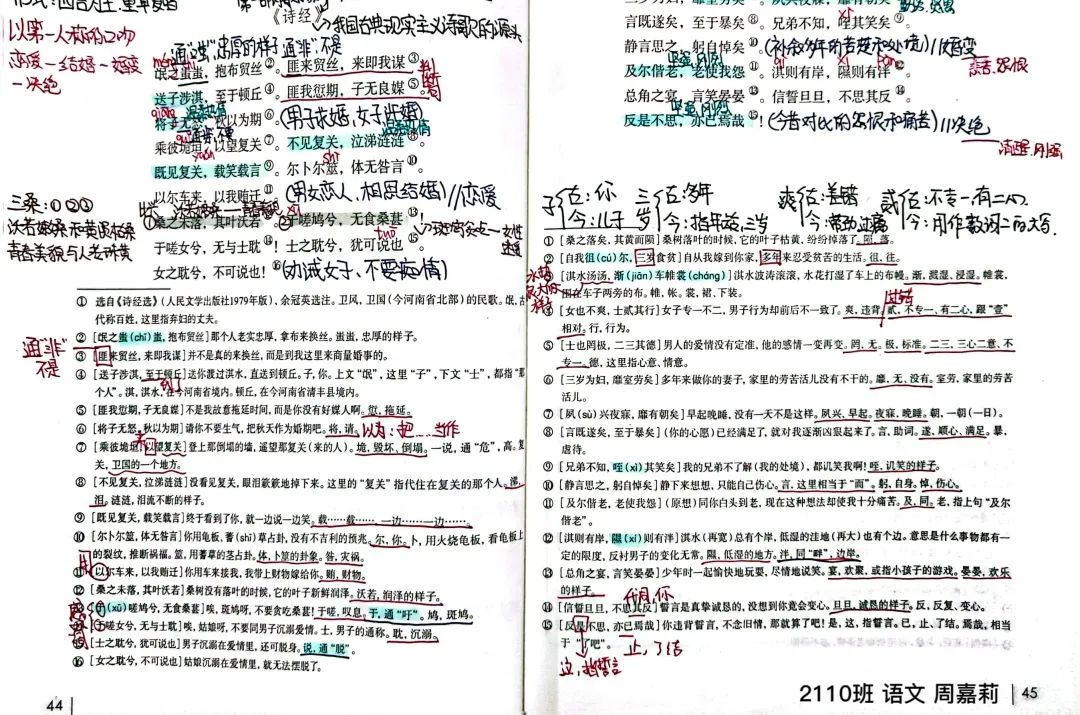 《诗经》
我国古典现实主义诗歌的源头
以第一人称的口吻
恋爱—结婚—婚变
—决绝
氓之蚩蚩，抱布贸丝②。匪来贸丝，来即我谋③
送子涉淇，至于顿丘④。匪我愆期，子无良媒⑤。
将子无怒，秋以为期⑥。(男子求婚，女子许婚)
乘彼垝垣，以望复关⑦。不见复关，泣涕涟涟⑧。
既见复关，载笑载言⑨。尔卜尔筮，体无咎言⑩。
以尔车来，以我贿迁⑪。(男女恋人，相思结婚)//恋爱
三桑：①②③
桑之未落，其叶沃若⑫。于嗟鸠兮，无食桑葚⑬！
于嗟女兮，无与士耽⑭！士之耽兮，犹可说也⑮
女之耽兮，不可说也⑯！(劝诫女子、不要痴情)
① 选自《诗经选》（人民文学出版社1979年版），余冠英选注。卫风，卫国（今河南省北部）的民歌。氓，古
代称百姓，这里指弃妇的丈夫。
② [氓之蚩(chī)蚩，抱布贸丝]那个人老实忠厚，拿布来换丝。蚩蚩，忠厚的样子。
通“非”
不是
③ [匪来贸丝，来即我谋]并不是真的来换丝，而是到我这里来商量婚事的。
④ [送子涉淇，至于顿丘]送你渡过淇水，直送到顿丘。子，你。上文“氓”，这里“子”，下文“士”，都指“那
个人”。淇，淇水，在今河南省境内。顿丘，在今河南省清丰县境内。
⑤ [匪我愆期，子无良媒]不是我故意拖延时间，而是你没有好媒人啊。愆，拖延。
⑥ [将子无怒，秋以为期]请你不要生气，把秋天作为婚期吧。将，请。 以为：把……当作
⑦ [乘彼垝垣，以望复关]登上那倒塌的墙，遥望那复关（来的人）。垝，毁坏、倒塌。一说，通“危”，高。复
关，卫国的一个地方。
⑧ [不见复关，泣涕涟涟]没看见复关，眼泪簌簌地掉下来。这里的“复关”指代住在复关的那个人。涕，
泪。涟涟，泪流不断的样子。
⑨ [既见复关，载笑载言]终于看到了你，就一边说一边笑。载……载……，一边……一边……。
⑩ [尔卜尔筮，体无咎言]你用龟板、蓍(shī)草占卦，没有不吉利的预兆。尔，你。卜，用火烧龟板，看龟板上
的裂纹，推断祸福。筮，用蓍草的茎占卦。体，卜筮的卦象。咎，灾祸。
⑪ [以尔车来，以我贿迁]你用车来接我，我带上财物嫁给你。贿，财物。
⑫ [桑之未落，其叶沃若]桑树没有落叶的时候，它的叶子新鲜润泽。沃若，润泽的样子。
⑬ [于(xū)嗟鸠兮，无食桑葚]唉，斑鸠呀，不要贪吃桑葚！于嗟，叹息。于，通“吁”。鸠，斑鸠。
⑭ [于嗟女兮，无与士耽]唉，姑娘呀，不要同男子沉溺爱情。士，男子的通称。耽，沉溺。
⑮ [士之耽兮，犹可说也]男子沉溺在爱情里，还可脱身。说，通“脱”。
⑯ [女之耽兮，不可说也]姑娘沉溺在爱情里，就无法摆脱了。
44
言既遂矣，至于暴矣⑧。兄弟不知，咥其笑矣⑨。
静言思之，躬自悼矣⑩。(补叙多年的苦楚和处境)//婚变
及尔偕老，老使我怨⑪。淇则有岸，隰则有泮⑫。
总角之宴，言笑晏晏⑬。信誓旦旦，不思其反⑭。
反是不思，亦已焉哉⑮！(今昔对比的怨恨和痛苦)//决绝
清醒、刚烈
子 古：你
今：儿子
三岁 古：多年
今：指年龄，三岁
爽 古：差错
贰 古：不专一，有二心
今：用作数词二的大写.
① [桑之落矣，其黄而陨]桑树落叶的时候，它的叶子枯黄，纷纷掉落了。陨，落。
② [自我徂(cú)尔，三岁食贫]自从我嫁到你家，多年来忍受贫苦的生活。徂，往。
③ [淇水汤汤，渐(jiān)车帷裳(cháng)]淇水波涛滚滚，水花打湿了车上的布幔。渐，溅湿、浸湿。帷裳，
围在车子两旁的布。帷，帐。裳，裙、下装。
④ [女也不爽，士贰其行]女子专一不二，男子行为却前后不一致了。爽，违背。贰，不专一、有二心，跟“壹”
相对。行，行为。
⑤ [士也罔极，二三其德]男人的爱情没有定准，他的感情一变再变。罔，无。极，标准。二三，三心二意、不
专一。德，这里指心意、情意。
⑥ [三岁为妇，靡室劳矣]多年来做你的妻子，家里的劳苦活儿没有不干的。靡，无、没有。室劳，家里的劳苦
活儿。
⑦ [夙(sù)兴夜寐，靡有朝矣]早起晚睡，没有一天不是这样。夙兴，早起。夜寐，晚睡。朝，一朝（一日）。
⑧ [言既遂矣，至于暴矣]（你的心愿）已经满足了，就对我逐渐凶狠起来了。言，助词。遂，顺心、满足。暴，
虐待。
⑨ [兄弟不知，咥(xì)其笑矣]我的兄弟不了解（我的处境），都讥笑我啊！咥，讥笑的样子。
⑩ [静言思之，躬自悼矣]静下来想想，只能自己伤心。言，这里相当于“而”。躬，自身。悼，伤心。
⑪ [及尔偕老，老使我怨]（原想）同你白头到老，现在这种想法却使我十分痛苦。及，同。老，指上句“及尔
偕老”。
⑫ [淇则有岸，隰(xí)则有泮]淇水（再宽）总有个岸，低湿的洼地（再大）也有个边。意思是什么事物都有一
定的限度，反衬男子的变化无常。隰，低湿的地方。泮，同“畔”，边岸。
⑬ [总角之宴，言笑晏晏]少年时一起愉快地玩耍，尽情地说笑。宴，欢聚，或指小孩子的游戏。晏晏，欢乐
的样子。
⑭ [信誓旦旦，不思其反]誓言是真挚诚恳的，没想到你竟会变心。旦旦，诚恳的样子。反，反复、变心。
⑮ [反是不思，亦已焉哉]你违背誓言，不念旧情，那就算了吧！是，这，指誓言。已，止、了结。焉哉，相当
于“了吧”。
止，了结
这，指誓言
2110班 语文 周嘉莉 45